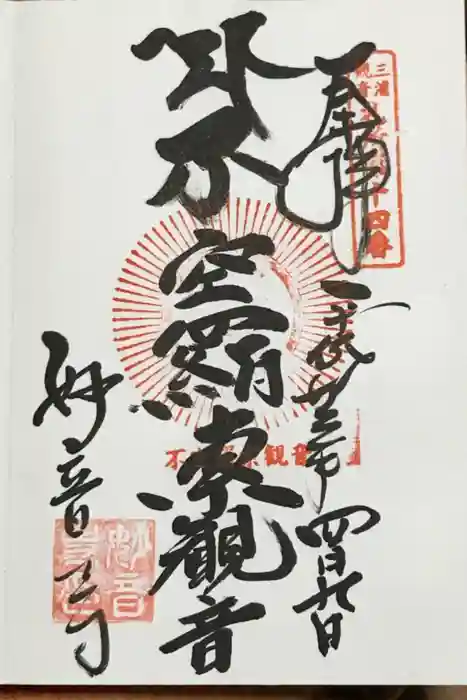 奉拝
平成廿三年四月九日
不空羂索観音
妙音寺
三浦
観音
十四番
不空羂索観音
妙音